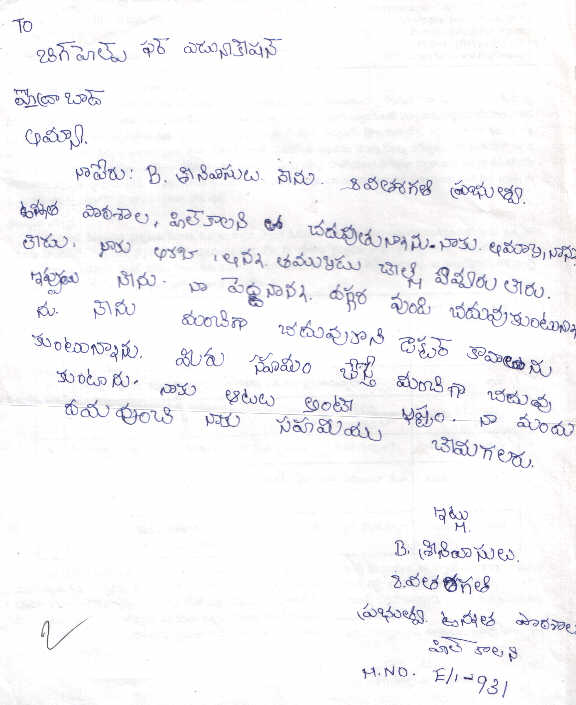 TO
బిగ్ హెల్ప్ ఫర్ ఎడ్యుకేషన్
హైద్రాబాద్
అమ్మా.
నా పేరు: B. శ్రీనివాసులు. నేను. 8వతరగతి ప్రభుత్వ
ఉన్నత పాఠశాల, హిల్ కాలని లో చదువుతున్నాను. నాకు. అమ్మ, నాన్న
లేరు. నాకు అక్క, అన్న. తమ్ముడు చెల్లి ఎవ్వరు లేరు.
ఇప్పుడు నేను. నా పెద్దనాన్న. దగ్గర వుండి చదువుకుంటున్నా
ను. నేను మంచిగా చదువుకొని డాక్టర్ కావాలను
కుంటున్నాను. మీరు సహాయం చేస్తే మంచిగా చదువు
కుంటాను. నాకు ఆటలు అంటే ఇష్టం. నా మందు
దయవుంచి నాకు సహయము చేయగలరు.
ఇట్లు
B. శ్రీనివాసులు.
8.వతరగతి
ప్రభుత్వ. ఉన్నత పాఠశాల
హిల్ కాలని
H.NO. E/1-931